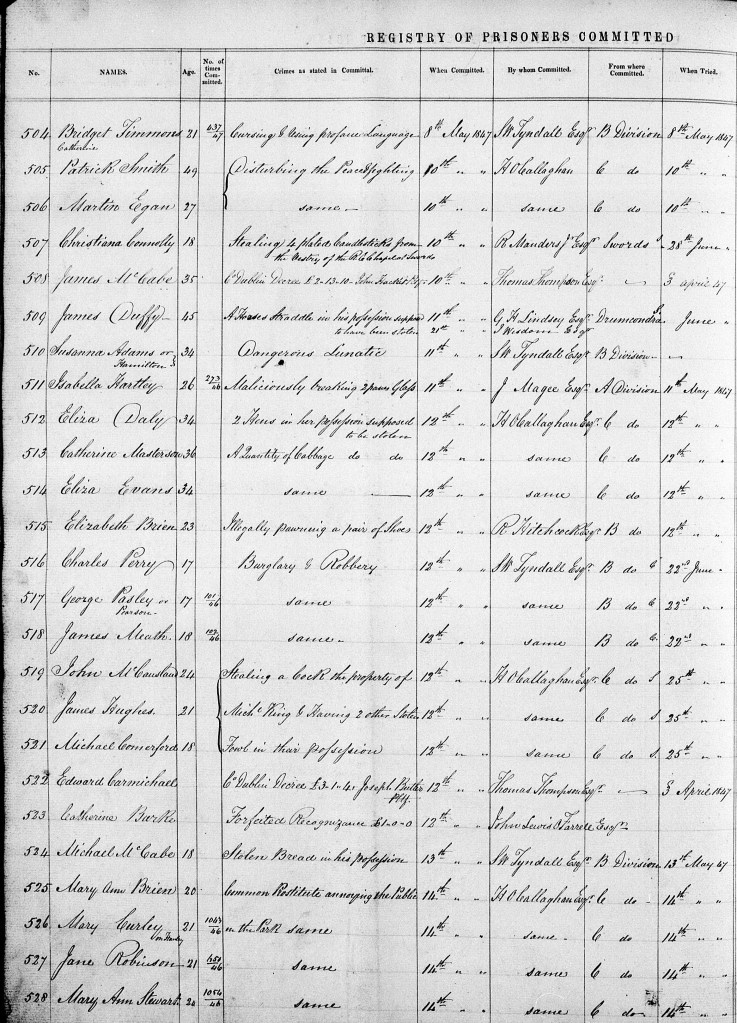 REGISTRY OF PRISONERS COMMITTED
No. NAMES. Age. No. of times Committed. Crimes as stated in Committal. When Committed. By whom Committed. From where Committed. When Tried.
504 Bridget Timmons 21 437/47 Cursing & Using profane Language 8th May 1847 Tyndall Esqr. B Division 8th May 1847
Catherine
505 Patrick Smith 49 Disturbing the Peace & fighting 10th " " H O'Callaghan C do 10th " "
506 Martin Egan 27 same 10th " " same C do 10th " "
507 Christiana Connolly 18 Stealing 4 plated Candlesticks from 10th " " R Manders Jr Esqr. Swords S 28th June "
the Vestry of the R C Chapel at Swords
508 James McCabe 35 Co Dublin Decree £2-13-10 John 10th " " Thomas Thompson Esqr. 3 april 47
509 James Duffy 45 A Horses Straddle in his possession suppd 11th " " G H Lindsey Esqr. Drumcondra June "
to have been stolen 21st " " J Wisdom Esqr
510 Susanna Adams or 34 Dangerous Lunatic 11th " " Tyndall Esqr. B Division
Hamilton
511 Isabella Hartley 26 273/46 Maliciously breaking 2 panes Glass 11th " " J Magee Esqr. A Division 11th May 1847
512 Eliza Daly 34 2 Hens in her possession supposed 12th " " H O'Callaghan Esqr. C do 12th " "
to be stolen
513 Catherine Masterson 36 A Quantity of Cabbage do do 12th " " same C do 12th " "
514 Eliza Evans 34 same 12th " " same C do 12th " "
515 Elizabeth Brien 23 Illegally pawning a pair of Shoes 12th " " R Hitchcock Esqr. B do 12th " "
516 Charles Perry 17 Burglary & Robbery 12th " " Tyndall Esqr. B do C 22nd June "
517 George Pasley or 17 101/46 same 12th " " same B do C 22nd " "
Pearson
518 James Meath 18 same 12th " " same B do C 22nd " "
519 John McCausland 24 Stealing a Cock the property of 12th " " H O'Callaghan Esqr. C do S 25th " "
520 James Hughes 21 Michl. King & Having 2 other Stolen 12th " " same C do S. 25th " "
521 Michael Comerford 18 Fowl in their possession 12th " " same C do S. 25th " "
522 Edward Carmichael Co Dublin Decree £3-1-4 Joseph Butler 12th " " Thomas Thompson Esqr. 3 April 1847
Pltff
523 Catherine Burke Forfeited Recognizance £1-0-0 12th " " John Lewis O'Farrell Esqr
524 Michael McCabe 18 Stolen Bread in his possession 13th " " Tyndall Esqr. B Division 13th May 47
525 Mary Ann Brien 20 Common Prostitute annoying the Public 14th " " H O'Callaghan Esqr. C do 14th " "
526 Mary Curley 21 1043/46 in the Park same 14th " " same C do 14th " "
527 Jane Robinson 21 651/46 same 14th " " same C do 14th " "
528 Mary Ann Stewart 20 1054/46 same 14th " " same C do 14th " "